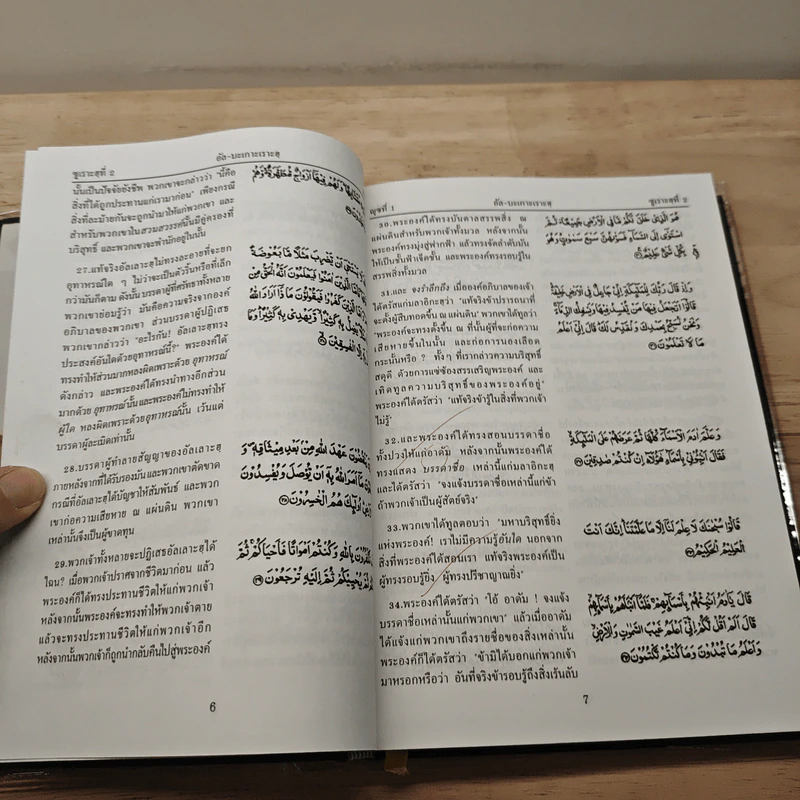 ซูเราะฮฺที่ 2
อัล-บะเกาะเราะฮฺ
นั้นเป็นปัจจัยยังชีพ พวกเขาจะกล่าวว่า "นี่คือ
สิ่งที่ได้ถูกประทานแก่เรามาก่อน" เพียงกรณี
สิ่งที่ละม้ายกันจะถูกนำมาให้แก่พวกเขา และ
สำหรับพวกเขาในสวนสวรรค์นั้นมีคู่ครองที่
บริสุทธิ์ และพวกเขาจะพำนักอยู่ในนั้น
27.แท้จริงอัลเลาะฮฺไม่ทรงละอายที่จะยก
อุทาหรณ์ใด ๆ ไม่ว่าจะเป็นตัวริ้นหรือที่เล็ก
กว่ามันก็ตาม ดังนั้น บรรดาผู้ที่ศรัทธาทั้งหลาย
พวกเขาย่อมรู้ว่า มันคือความจริงจากองค์
อภิบาลของพวกเขา ส่วนบรรดาผู้ปฏิเสธ
พวกเขากล่าวว่า "อะไรกัน! อัลเลาะฮฺทรง
ประสงค์อันใดด้วยอุทาหรณ์นี้?" พระองค์ได้
ทรงทำให้ส่วนมากหลงผิดเพราะด้วย อุทาหรณ์
ดังกล่าว และพระองค์ได้ทรงนำทางอีกส่วน
มากด้วย อุทาหรณ์นั้นและพระองค์ไม่ทรงทำให้
ผู้ใด หลงผิดเพราะด้วยอุทาหรณ์นั้น เว้นแต่
บรรดาผู้ละเมิดเท่านั้น
28.บรรดาผู้ทำลายสัญญาของอัลเลาะฮฺ
ภายหลังจากที่ได้รับรองมัน และพวกเขาตัดขาด
กรณีที่อัลเลาะฮฺได้บัญชาให้สัมพันธ์ และพวก
เขาก่อความเสียหาย ณ แผ่นดิน พวกเขา
เหล่านั้นจึงเป็นผู้ขาดทุน
29.พวกเจ้าทั้งหลายจะปฏิเสธอัลเลาะฮฺได้
ไฉน? เมื่อพวกเจ้าปราศจากชีวิตมาก่อน แล้ว
พระองค์ก็ได้ทรงประทานชีวิตให้แก่พวกเจ้า
หลังจากนั้นพระองค์จะทรงทำให้พวกเจ้าตาย
แล้วจะทรงประทานชีวิตให้แก่พวกเจ้าอีก
หลังจากนั้นพวกเจ้าก็ถูกนำกลับคืนไปสู่พระองค์
وَلَهُمْ فِيهَا أَزْوَاجٌ مُطَهَّرَةٌ وَهُمْ
أَنْ يَضْرِبَ مَثَلًا مَا بَعُوضَةً
الَّذِينَ آمَنُوا فَيَعْلَمُونَ أَنَّهُ الْحَقُّ مِنْ
الَّذِينَ كَفَرُوا فَيَقُولُونَ مَاذَا أَرَادَ اللهُ
يُضِلُّ بِهِ كَثِيرًا وَيَهْدِي بِهِ كَثِيرًا وَمَا
الْفَاسِقِينَ
عَهْدَ اللهِ مِنْ بَعْدِ مِيثَاقِهِ وَ
مَا أَمَرَ اللهُ بِهِ أَنْ يُوصَلَ وَيُفْسِدُونَ
أُولَٰئِكَ هُمُ الْخَاسِرُونَ
بِاللهِ وَكُنْتُمْ أَمْوَاتًا فَأَحْيَاكُمْ ثُمَّ
يُحْيِيكُمْ ثُمَّ إِلَيْهِ تُرْجَعُونَ
6
ญุซที่ 1
อัล-บะเกาะเราะฮฺ
ซูเราะฮฺที่ 2
30.พระองค์ได้ทรงบันดาลสรรพสิ่ง ณ
แผ่นดินสำหรับพวกเจ้าทั้งมวล หลังจากนั้น
พระองค์ทรงมุ่งสู่ฟากฟ้า แล้วทรงจัดลำดับมัน
ให้เป็นชั้นฟ้าเจ็ดชั้น และพระองค์ทรงรอบรู้ใน
สรรพสิ่งทั้งมวล
31.และ จงรำลึกถึง เมื่อองค์อภิบาลของเจ้า
ได้ตรัสแก่มลาอิกะฮฺว่า "แท้จริงข้าปรารถนาที่
จะตั้งผู้สืบทอดขึ้น ณ แผ่นดิน" พวกเขาได้ทูลว่า
"พระองค์จะทรงตั้งขึ้น ณ ที่นั้นผู้ที่จะก่อความ
เสียหายขึ้นในนั้น และก่อการนองเลือด
กระนั้นหรือ ? ทั้งๆ ที่เรากล่าวความบริสุทธิ์
สดุดี ด้วยการแซ่ซ้องสรรเสริญพระองค์ และ
เทิดทูลความบริสุทธิ์ของพระองค์อยู่"
พระองค์ได้ตรัสว่า "แท้จริงข้ารู้ในสิ่งที่พวกเจ้า
ไม่รู้"
32.และพระองค์ได้ทรงสอนบรรดาชื่อ
ทั้งปวงให้แก่อาดัม หลังจากนั้นพระองค์ได้
ทรงแสดง บรรดาชื่อ เหล่านี้แก่มลาอิกะฮฺ
และได้ตรัสว่า "จงแจ้งบรรดาชื่อเหล่านี้แก่ข้า
ถ้าหากพวกเจ้าเป็นผู้สัตย์จริง"
33.พวกเขาได้ทูลตอบว่า "มหาบริสุทธิ์ยิ่ง
แห่งพระองค์! เราไม่มีความรู้อันใด นอกจาก
สิ่งที่พระองค์ได้สอนเรา แท้จริงพระองค์เป็น
ผู้ทรงรอบรู้ยิ่ง ผู้ทรงปรีชาญาณยิ่ง"
34.พระองค์ได้ตรัสว่า "โอ้ อาดัม ! จงแจ้ง
บรรดารายชื่อเหล่านั้นแก่พวกเขา" แล้วเมื่ออาดัม
ได้แจ้งแก่พวกเขาถึงรายชื่อของสิ่งเหล่านั้น
พระองค์ก็ได้ตรัสว่า "ข้ามิได้บอกแก่พวกเจ้า
มาหรอกหรือว่า อันที่จริงข้ารอบรู้ถึงสิ่งเร้นลับ
هُوَ الَّذِي خَلَقَ لَكُمْ مَا فِي الْأَرْضِ جَمِيعًا ثُمَّ
اسْتَوَى إِلَى السَّمَاءِ فَسَوَّاهُنَّ سَبْعَ سَمَوَاتٍ وَهُوَ
بِكُلِّ شَيْءٍ عَلِيمٌ
وَإِذْ قَالَ رَبُّكَ لِلْمَلَائِكَةِ إِنِّي جَاعِلٌ فِي الْأَرْضِ خَلِيفَةً
قَالُوا أَتَجْعَلُ فِيهَا مَنْ يُفْسِدُ فِيهَا وَيَسْفِكُ الدِّمَاءَ
وَنَحْنُ نُسَبِّحُ بِحَمْدِكَ وَنُقَدِّسُ لَكَ قَالَ إِنِّي أَعْلَمُ
مَا لَا تَعْلَمُونَ
وَعَلَّمَ آدَمَ الْأَسْمَاءَ كُلَّهَا ثُمَّ عَرَضَهُمْ عَلَى الْمَلَائِكَةِ
فَقَالَ أَنْبِئُونِي بِأَسْمَاءِ هَؤُلَاءِ إِنْ كُنْتُمْ صَادِقِينَ
قَالُوا سُبْحَانَكَ لَا عِلْمَ لَنَا إِلَّا مَا عَلَّمْتَنَا إِنَّكَ أَنْتَ
الْعَلِيمُ الْحَكِيمُ
قَالَ يَا آدَمُ أَنْبِئْهُمْ بِأَسْمَائِهِمْ فَلَمَّا أَنْبَأَهُمْ بِأَسْمَائِهِمْ
قَالَ أَلَمْ أَقُلْ لَكُمْ إِنِّي أَعْلَمُ غَيْبَ السَّمَوَاتِ وَالْأَرْضِ
وَأَعْلَمُ مَا تُبْدُونَ وَمَا كُنْتُمْ تَكْتُمُونَ
7